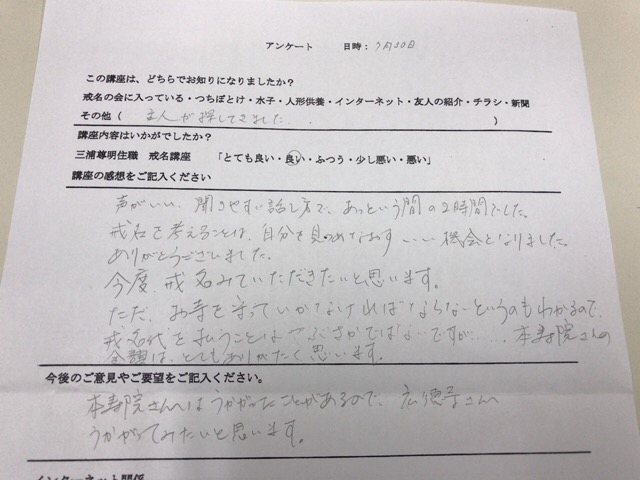 アンケート　　日時：7月30日
この講座は、どちらでお知りになりましたか？
戒名の会に入っている・つちぼとけ・水子・人形供養・インターネット・友人の紹介・チラシ・新聞
その他（　主人が探してきました．．　）
講座内容はいかがでしたか？
三浦尊明住職　戒名講座　「とても良い・良い・ふつう・少し悪い・悪い」
講座の感想をご記入ください
声がいい、聞きやすい話し方で、あっという間の2時間でした。
戒名を考えることは、自分を見つめなおす いい機会となりました。
ありがとうございました。
今度、戒名みていただきたいと思います。
ただ、お寺を守っていかなければならないというのもわかるので、
戒名代を払うことはやぶさかではないですが……、本寿院さんの
金額は、とてもありがたく思います。
今後のご意見やご要望をご記入ください。
本寿院さんへはうかがったことがあるので、広徳寺さんへ
うかがってみたいと思います。
インターネット関係